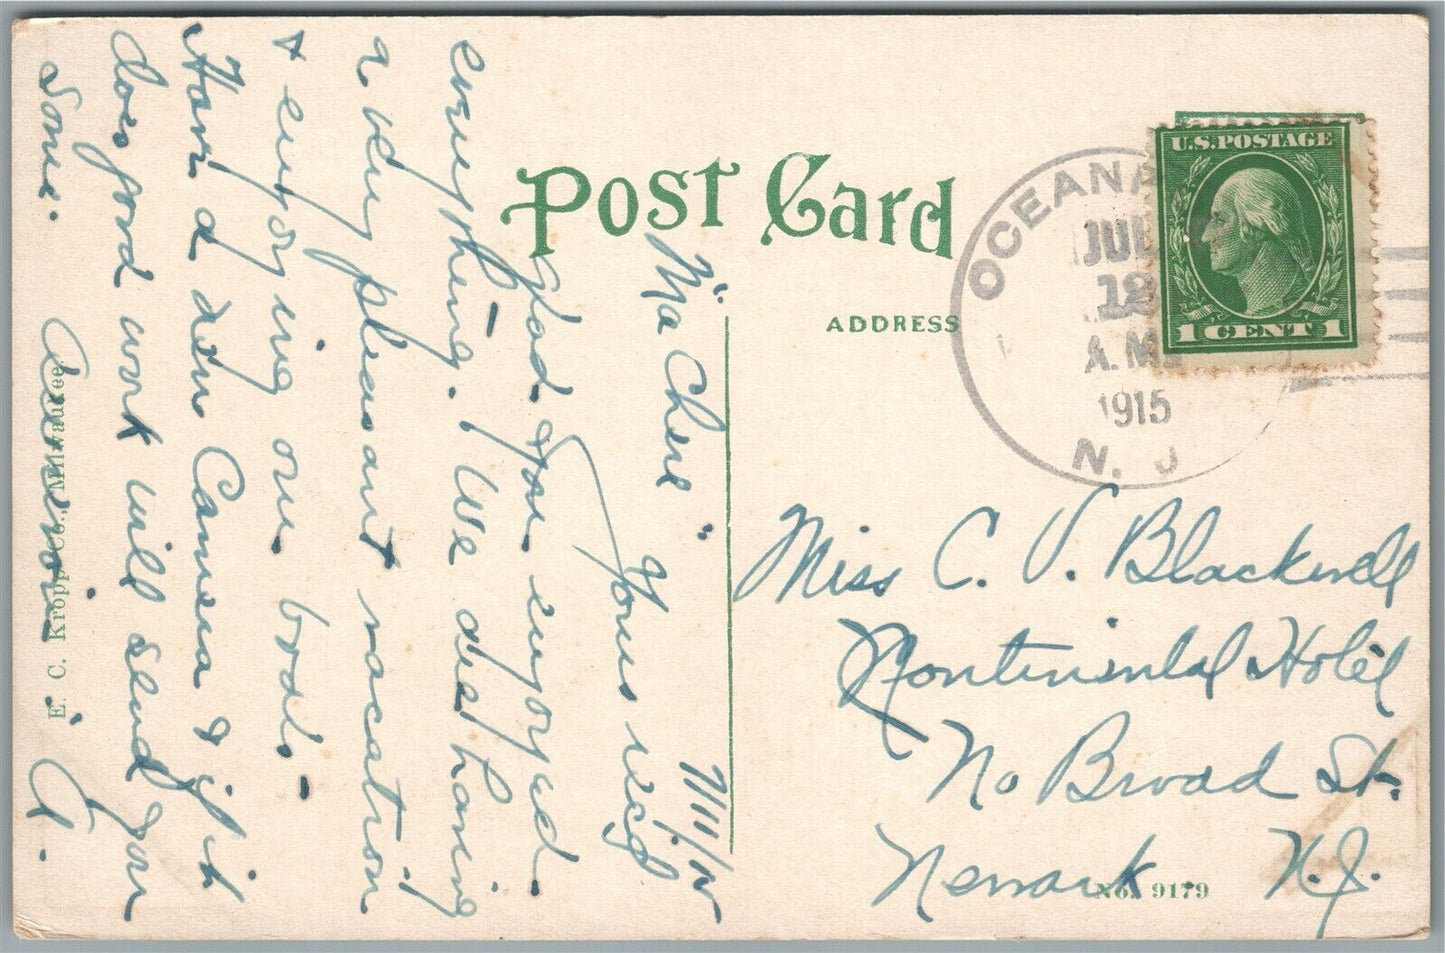 POST CARD
ADDRESS
U.S. POSTAGE
1 CENT 1
OCEAN
JUL
12
A.M.
1915
N. J
7/11/15
"Ma Cheri" Yours recd
glad you enjoyed
everything. We are having
a very pleasant vacation
& enjoying our boat.
Have a new Camera & if it
does good work will send you
some.
Miss C. V. Blackwell
Continental Hotel
No Broad St.
Newark N.J.
E. C. Kropp Co., Milwaukee
No. 9179